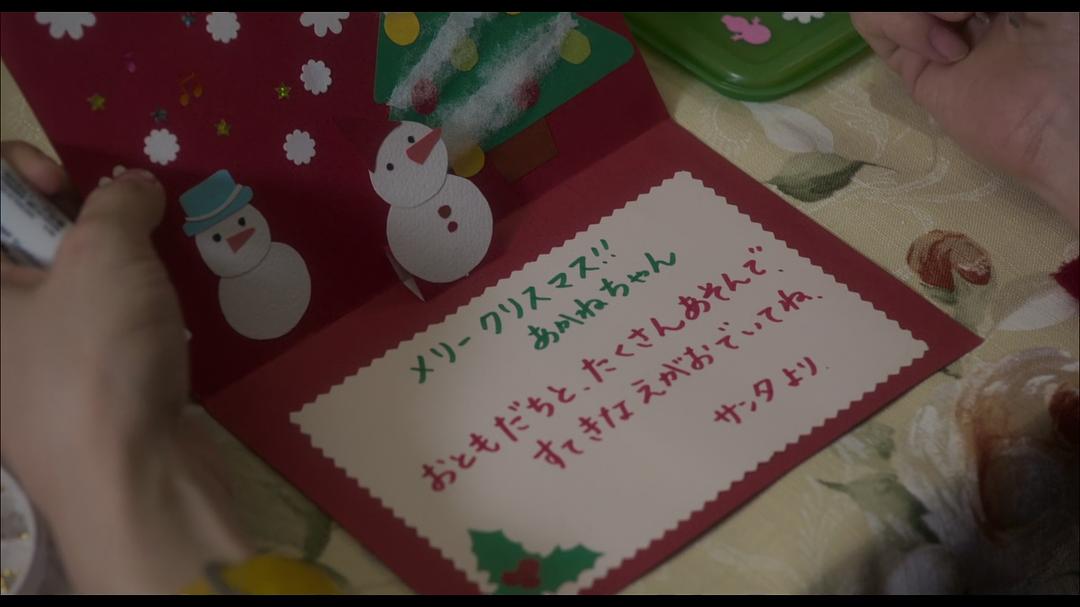 メリークリスマス!!
あかねちゃん
おともだちと、たくさんあそんで、
すてきなえがおでいてね.
サンタより.